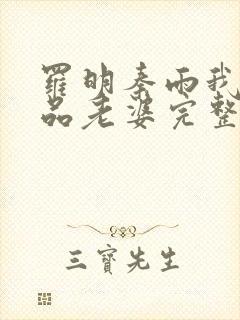 羅明秦雨我
品老婆完整
三寶先生